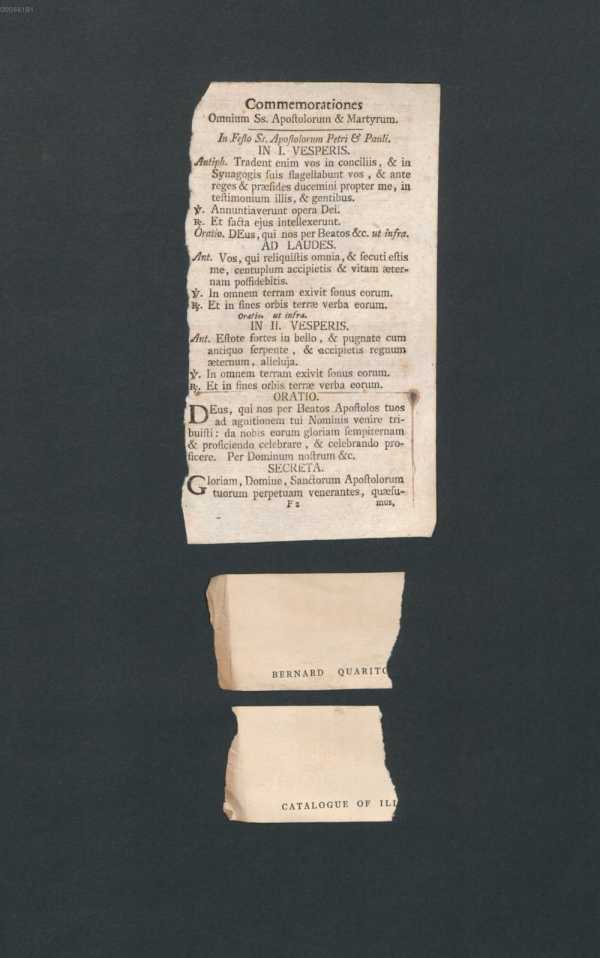 00044191
Commemorationes
Omnium Ss. Apoſtolorum & Martyrum.
In Feſto Ss. Apoſtolorum Petri & Pauli.
IN I. VESPERIS.
Antiph. Tradent enim vos in conciliis, & in
Synagogis ſuis flagellabunt vos, & ante
reges & præſides ducemini propter me, in
teſtimonium illis, & gentibus.
℣. Annuntiaverunt opera Dei.
℟. Et facta ejus intellexerunt.
Oratio. DEus, qui nos per Beatos &c. ut infra.
AD LAUDES.
Ant. Vos, qui reliquiſtis omnia, & ſecuti eſtis
me, centuplum accipietis & vitam æter-
nam poſſidebitis.
℣. In omnem terram exivit ſonus eorum.
℟. Et in fines orbis terræ verba eorum.
Oratio ut infra.
IN II. VESPERIS.
Ant. Eſtote fortes in bello, & pugnate cum
antiquo ſerpente, & accipietis regnum
æternum, alleluja.
℣. In omnem terram exivit ſonus eorum.
℟. Et in fines orbis terræ verba eorum.
ORATIO.
DEus, qui nos per Beatos Apoſtolos tuos
ad agnitionem tui Nominis venire tri-
buiſti: da nobis eorum gloriam ſempiternam
& proficiendo celebrare, & celebrando pro-
ficere. Per Dominum noſtrum &c.
SECRETA.
Gloriam, Domine, Sanctorum Apoſtolorum
tuorum perpetuam venerantes, quæſu-
F 2 mus,
BERNARD QUARITC
CATALOGUE OF ILL